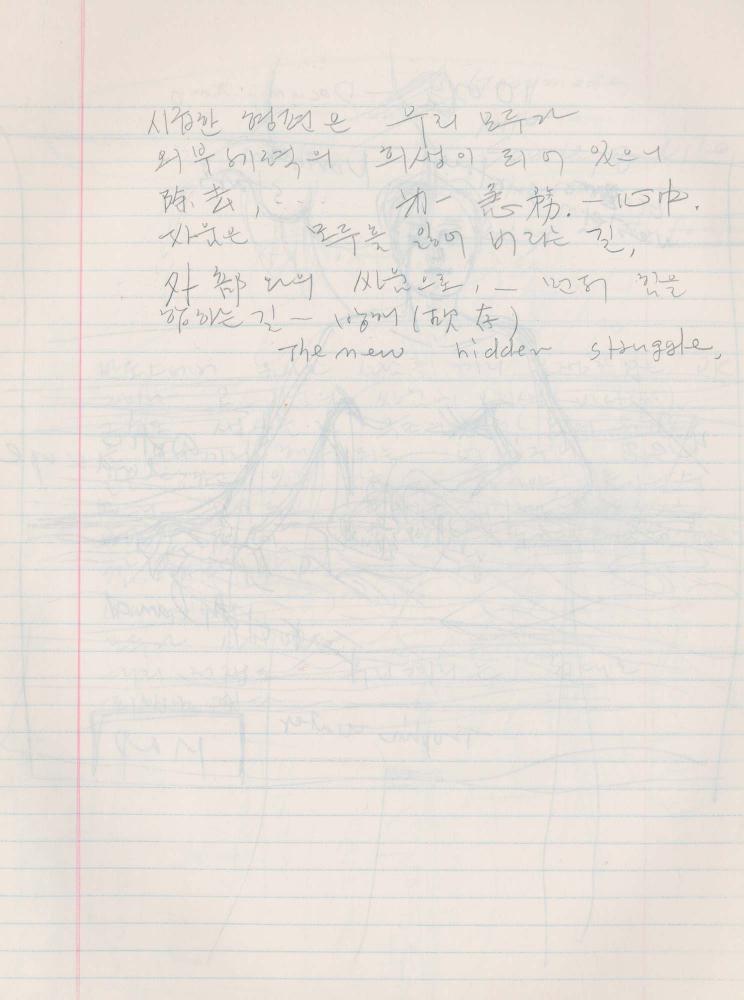 시급한 형편은 우리 모두가
외부세력의 희생이 되어 있으니
除去, 급무. 一心中.
싸움은 모두를 잃어 버리는 길,
外部와의 싸움으로, — 먼저 힘을
합하는 길 —
The new hidden struggle,